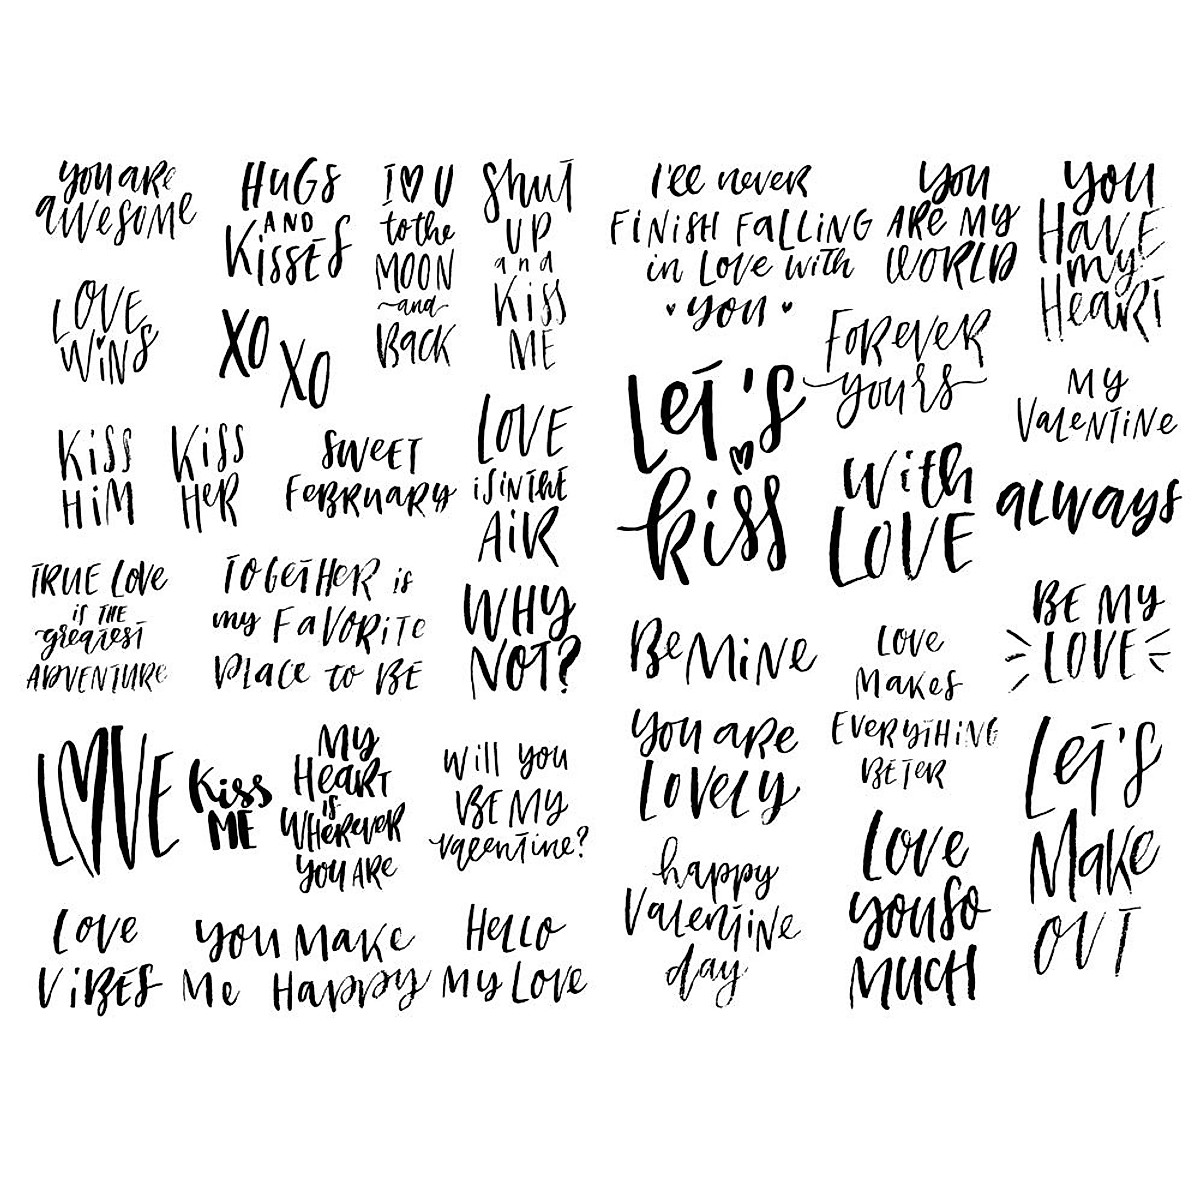 you are
awesome
HUGS
AND
KISSES
I ♡ U
to the
MOON
and
BACK
Shut
UP
and
Kiss
ME
LOVE
WiNS
XO
XO
KiSS
HiM
KiSS
HeR
SWEET
FEBRUARY
LOVE
iS iN tHE
AiR
TRUE LOVE
iS THE
greatest
ADVENTURE
TOGETHER is
my FaVORiTe
PLace to BE
WHY
NOT?
LOVE
Kiss
ME
MY
HeaRT
iS
WHerever
YOU ARe
will you
BE MY
valentine?
Love
ViBES
you Make
Me Happy
Hello
My Love
I'll never
FiNiSH FaLLiNG
in Love with
you
you
ARe MY
WORLD
you
HaVE
my
HeaRT
Forever
yours
Let's
kiss
MY
VaLeNTiNe
with
LOVE
always
Be MiNe
Love
Makes
EVERYTHiNG
BETER
BE MY
LOVE
you are
Lovely
happy
VaLeNTiNe
day
Love
you so
MUCH
Let's
Make
OUT